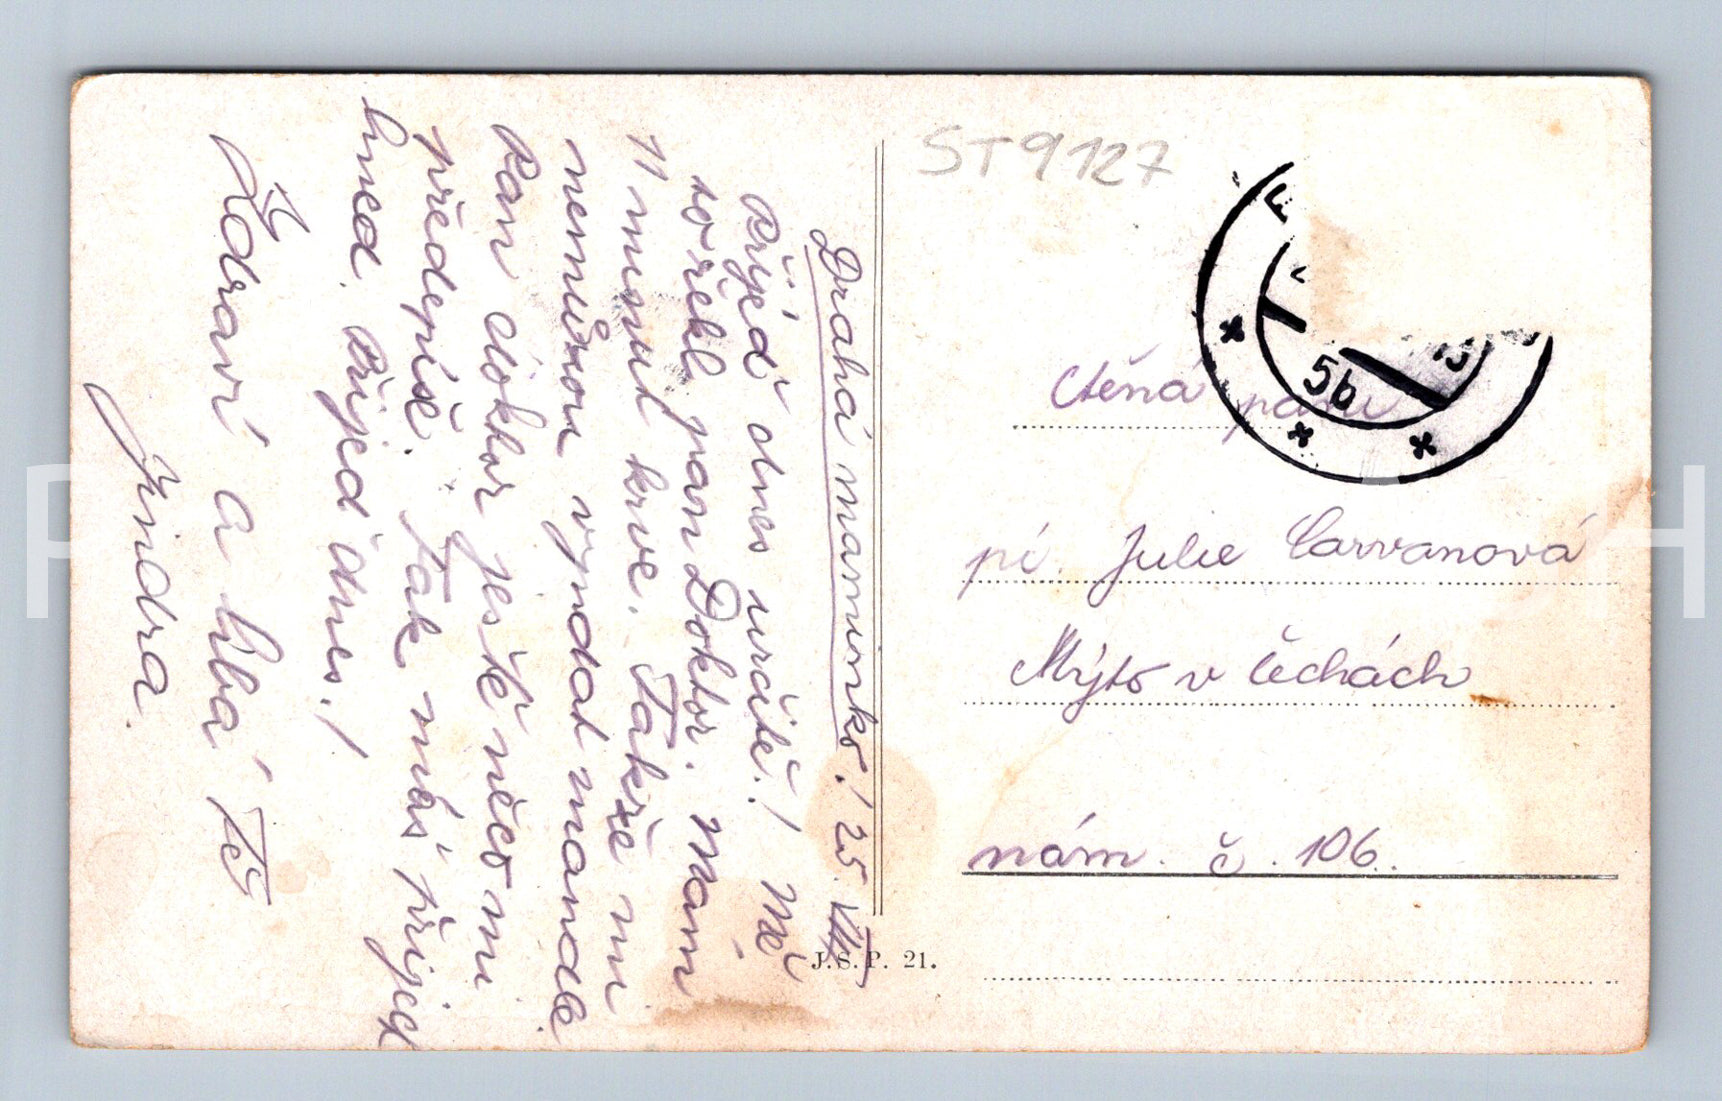 Drahá maminko! 25. VIII.
Přijeď dnes určitě! Mě
to řekl pan Doktor. Mám
11 minut krve. Takže mi
nemůžou vyndat mandle.
Pan doktor ještě něco mi
předepíše. Tak máš přijeck
hned. Přijeď dnes!
Zdraví a líbá Tě
Tě
Jindra.
ST9127
5b
Ctěná paní
pí. Julie Carvanová
Mýto v Čechách
nám. č. 106.
J. S. P. 21.